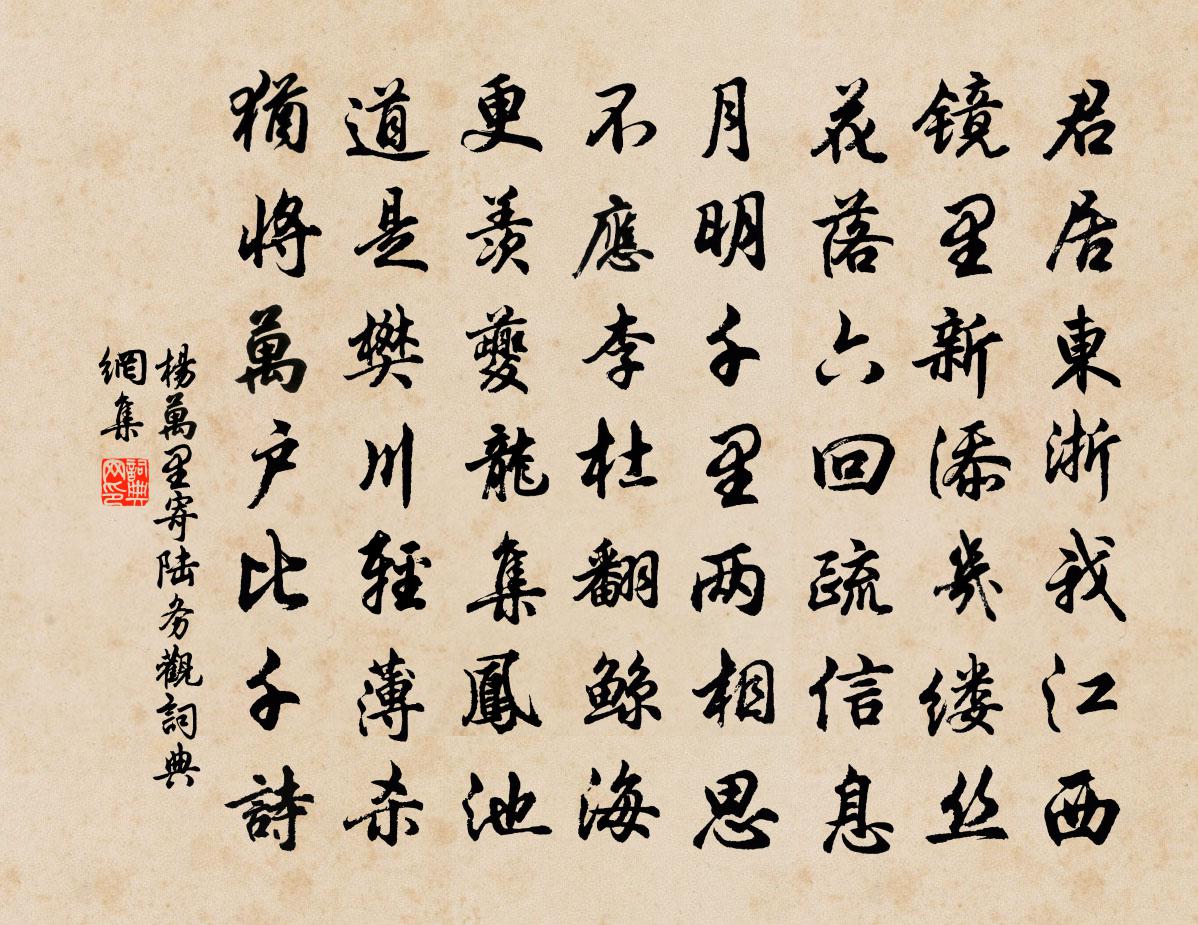 君居東浙我江西
镜里新添幾缕丝
花落六回疏信息
月明千里两相思
不應李杜翻鲸海
更羨夔龍集鳳池
道是樊川輕薄杀
猶將萬户比千詩
楊萬里寄陆务觀詞典
網集
詞典
网印